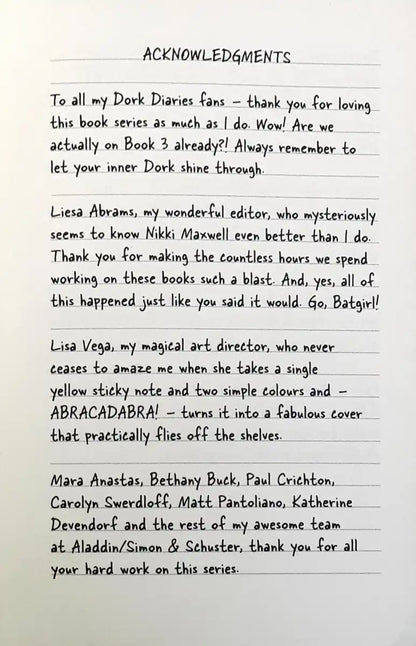 ACKNOWLEDGMENTS
To all my Dork Diaries fans – thank you for loving
this book series as much as I do. Wow! Are we
actually on Book 3 already?! Always remember to
let your inner Dork shine through.
Liesa Abrams, my wonderful editor, who mysteriously
seems to know Nikki Maxwell even better than I do.
Thank you for making the countless hours we spend
working on these books such a blast. And, yes, all of
this happened just like you said it would. Go, Batgirl!
Lisa Vega, my magical art director, who never
ceases to amaze me when she takes a single
yellow sticky note and two simple colours and –
ABRACADABRA! – turns it into a fabulous cover
that practically flies off the shelves.
Mara Anastas, Bethany Buck, Paul Crichton,
Carolyn Swerdloff, Matt Pantoliano, Katherine
Devendorf and the rest of my awesome team
at Aladdin/Simon & Schuster, thank you for all
your hard work on this series.